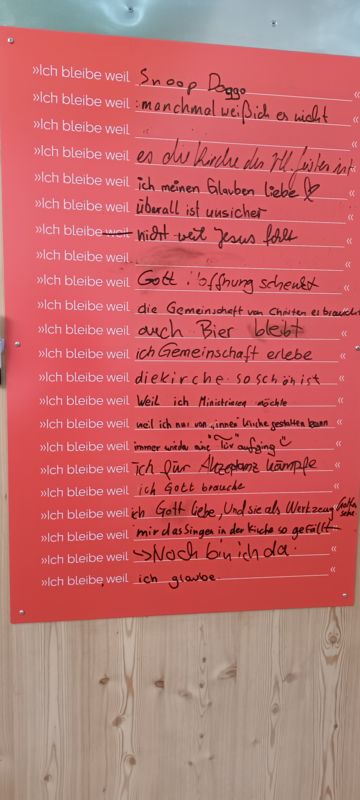 »Ich bleibe weil Snoop Doggo «
»Ich bleibe weil : manchmal weiß ich es nicht «
»Ich bleibe weil " «
»Ich bleibe weil es die Kirche des Hl. Geistes ist «
»Ich bleibe weil ich meinen Glauben liebe ♡ «
»Ich bleibe weil überall ist unsicher «
»Ich bleibe weil nicht weil Jesus fehlt «
»Ich bleibe weil «
»Ich bleibe weil Gott Hoffnung schenkt «
»Ich bleibe weil die Gemeinschaft von Christen es braucht
»Ich bleibe weil auch Bier bleibt «
»Ich bleibe weil ich Gemeinschaft erlebe «
»Ich bleibe weil die kirche so schön ist «
»Ich bleibe weil Weil ich Ministrieren möchte «
»Ich bleibe weil weil ich nur von „innen" Kirche gestalten kann
»Ich bleibe weil immer wieder eine "Tür" aufging ☺ «
»Ich bleibe weil ich für Akzeptanz kämpfe «
»Ich bleibe weil ich Gott brauche «
»Ich bleibe weil ich Gott liebe, Und sie als Werkzeug Gottes sehe.
»Ich bleibe weil mir das Singen in der Kirche so gefällt
»Ich bleibe weil → Noch bin ich da. «
»Ich bleibe weil ich glaube. «